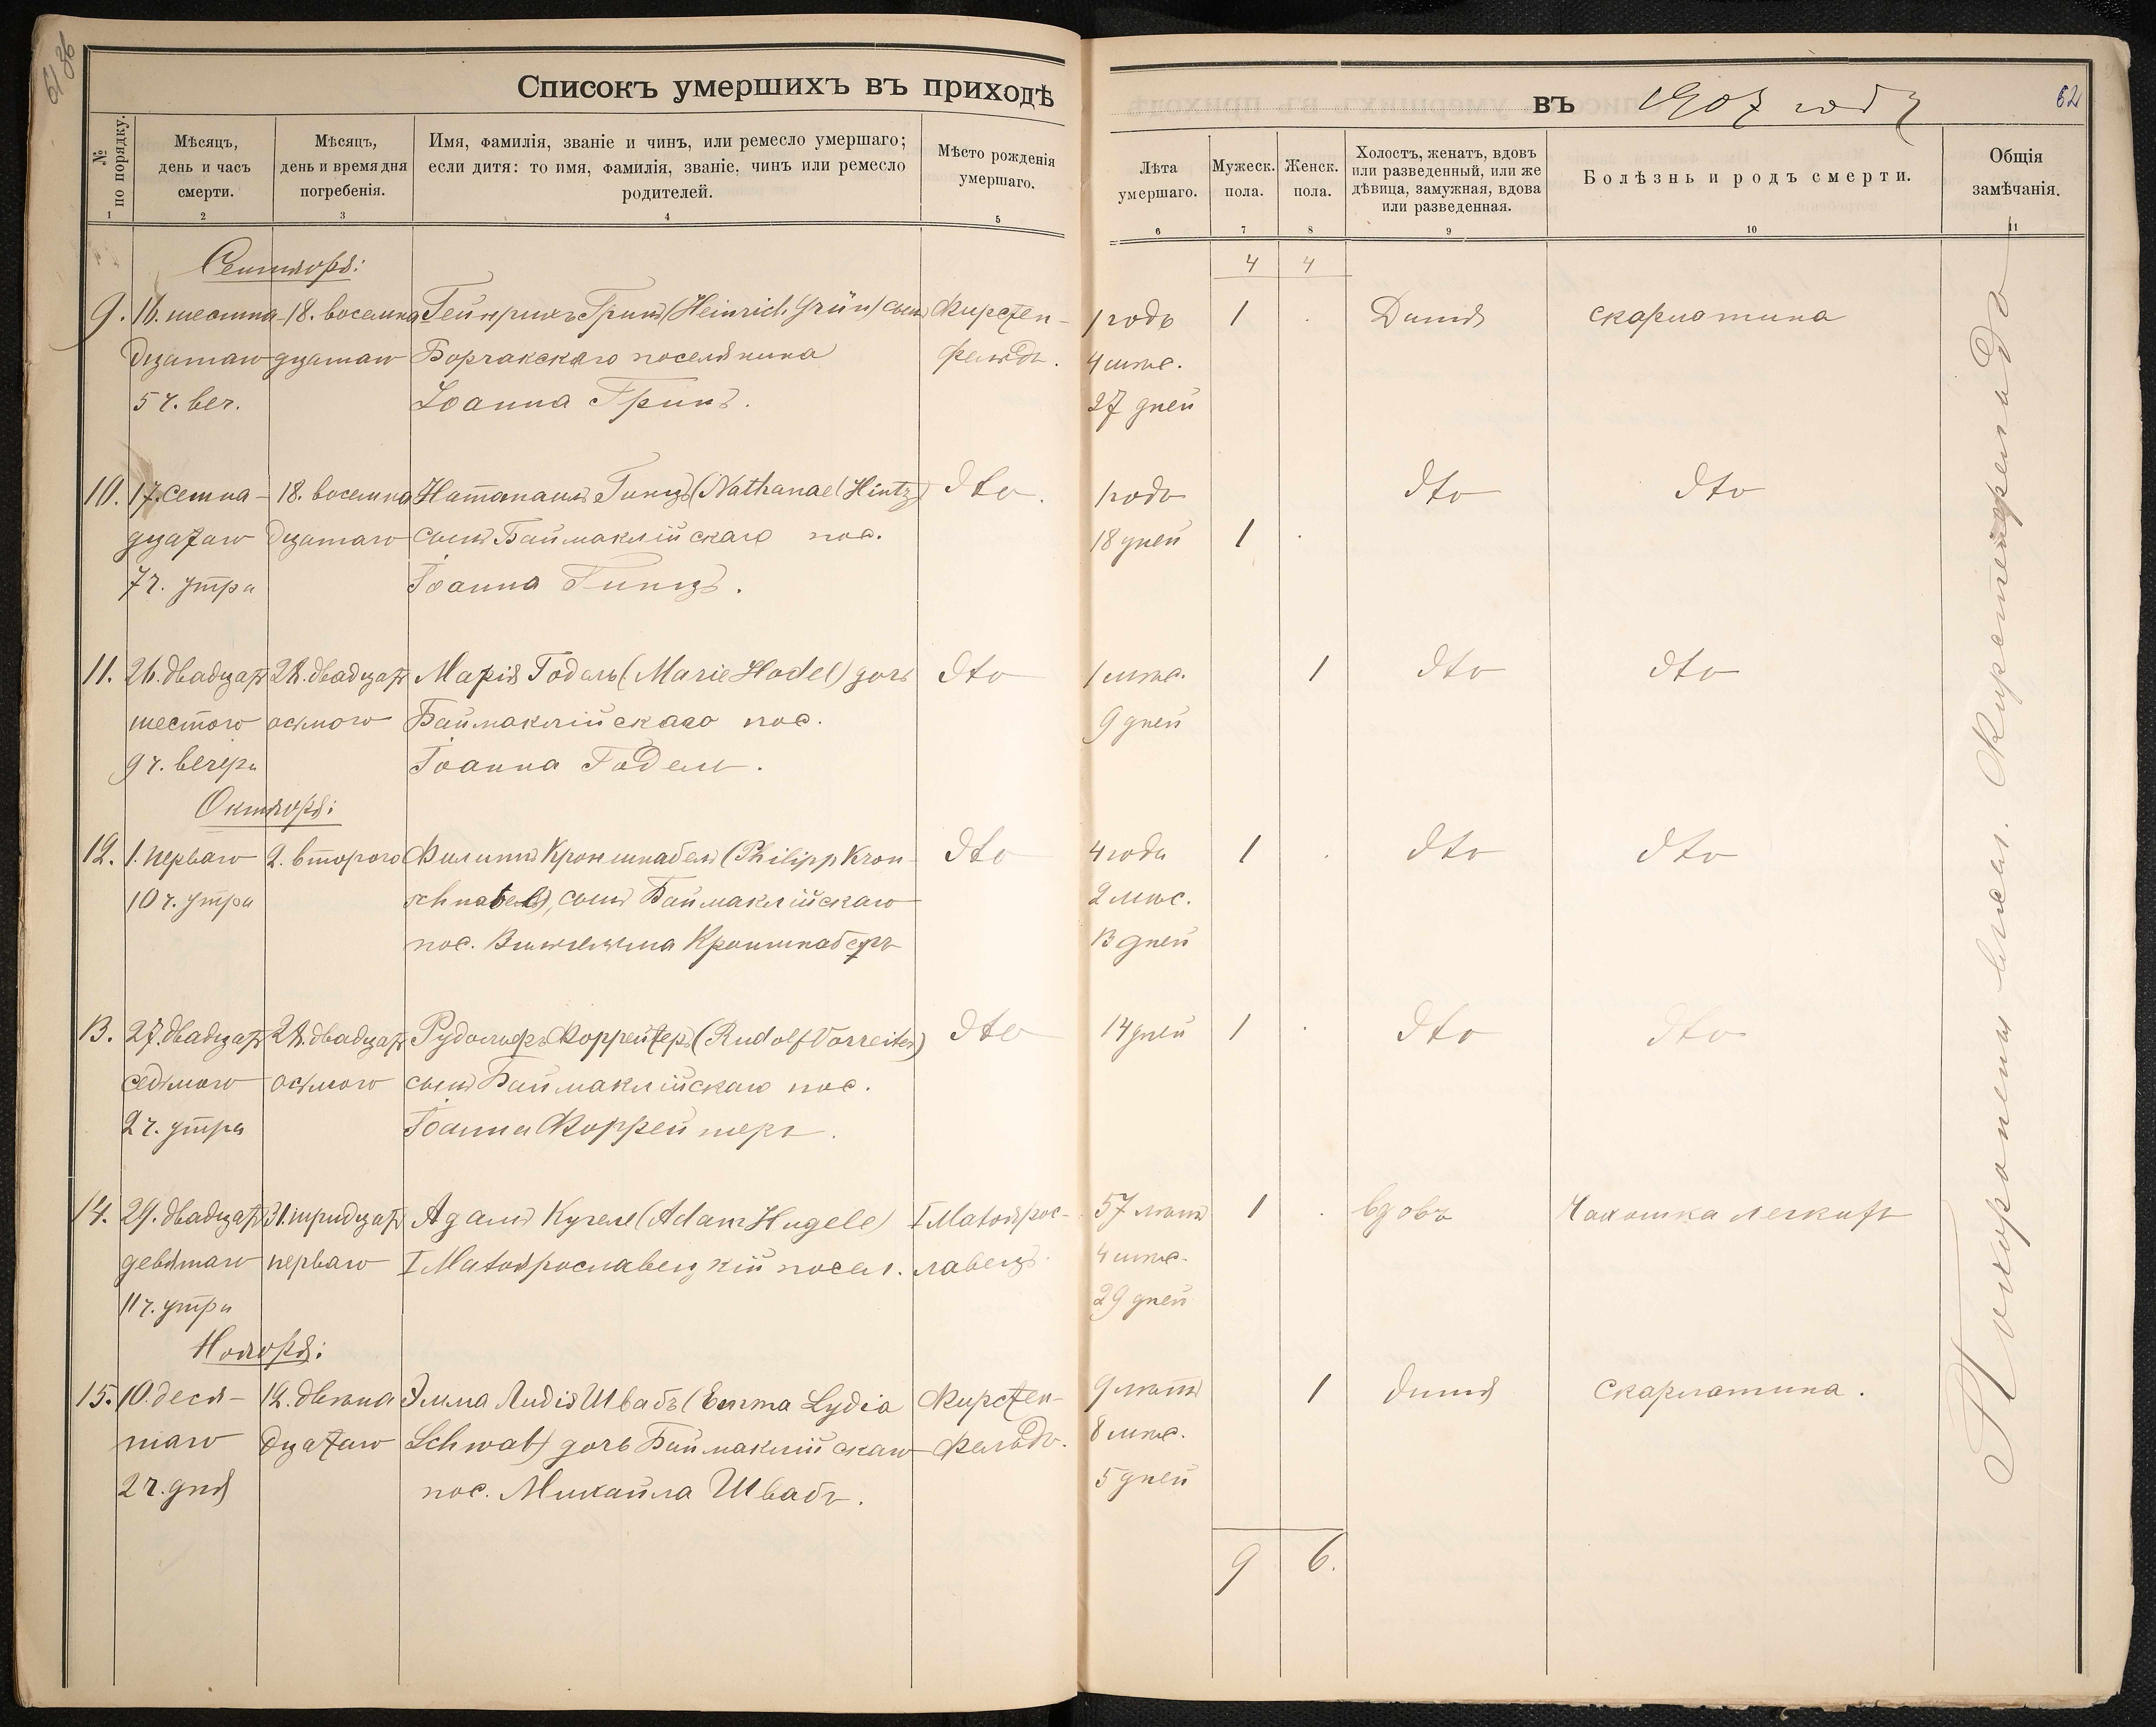 61 36
Списокъ умершихъ въ приходѣ
въ 1907 году
62
№ по порядку.
Мѣсяцъ,
день и часъ
смерти.
Мѣсяцъ,
день и время дня
погребенія.
Имя, фамилія, званіе и чинъ, или ремесло умершаго;
если дитя: то имя, фамилія, званіе, чинъ или ремесло
родителей.
Мѣсто рожденія
умершаго.
Лѣта
умершаго.
Мужеск.
пола.
Женск.
пола.
Холостъ, женатъ, вдовъ
или разведенный, или же
дѣвица, замужная, вдова
или разведенная.
Болѣзнь и родъ смерти.
Общія
замѣчанія.
1 2 3 4 5 6 7 8 9 10 11
Сентября:
4 4
9. 16. шестна- 18. восемна Гейнрихъ Гринъ (Heinrich Grün) сынъ Кирстен- 1 годъ 1 . Дитя скарлатина
дцатаго дцатаго Борчакскаго поселянина фельдъ. 4 мѣс.
5 ч. веч. Іоанна Гринъ. 27 дней
10. 17. семна- 18. восемна Натанаилъ Гинцъ (Nathanael Hintz) dto. 1 годъ dto dto
дцатаго дцатаго сынъ Баймаклійскаго пос. 18 дней 1 .
7 ч. утра Іоанна Гинцъ.
11. 26. двадцат 28. двадцат Марія Годель (Marie Hodel) дочь dto 1 мѣс. 1 dto dto
шестого осьмого Баймаклійскаго пос. 9 дней
9 ч. вечера Іоанна Годель.
Октября:
12. 1. перваго 2. второго Филиппъ Кроншнабель (Philipp Kron- dto 4 года 1 . dto dto
10 ч. утра schnabel), сынъ Баймаклійскаго 2 мѣс.
пос. Вильгельма Кроншнабель 13 дней
13. 27. двадцат 28. двадцат Рудольфъ Форрейтеръ (Rudolf Vorreiter) dto 14 дней 1 . dto dto
седьмого осьмого сынъ Баймаклійскаго пос.
2 ч. утра Іоанна Форрейтеръ.
14. 29. двадцат 31. тридцат Адамъ Кугеле (Adam Kugele) I Малояро- 57 лѣтъ 1 . вдовъ Чахотка легкихъ
девятаго перваго I Малоярославецкій посел. славецъ. 4 мѣс.
11 ч. утра 29 дней
Ноября:
15. 10. деся- 12. двѣна Эмма Лидія Швабъ (Emma Lydia Кирстен- 9 лѣтъ 1 дитя Скарлатина.
таго дцатаго Schwab) дочь Баймаклійскаго фельдъ. 8 мѣс.
2 ч. дня пос. Михаила Швабъ. 5 дней
9 6.
Похоронены въ Кирстенфельдѣ